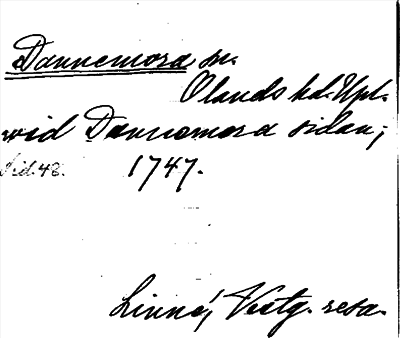 Dannemora sn.
Olands hd. Upl.
wid Dannemora sidan;
Sid. 48. 1747.
Linné, Vestg. resa.